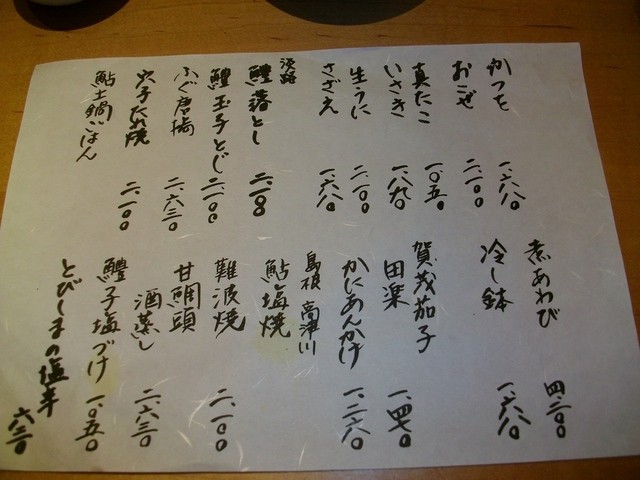 かつを 一.六八〇
おこぜ 二.一〇〇
真たこ 一.〇五〇
いさき 一.八九〇
生うに 二.一〇〇
さざえ 一.六八〇
淡路
鱧落とし 二.一〇〇
鱧玉子とじ 二.一〇〇
ふぐ唐揚 二.六三〇
穴子たれ焼 二.一〇〇
鮎土鍋ごはん
煮あわび 四.二〇〇
冷し鉢 一.六八〇
賀茂茄子
田楽 一.四七〇
かにあんかけ 一.二六〇
島根 高津川
鮎塩焼
難波焼 二.一〇〇
甘鯛頭
酒蒸し 二.六三〇
鱧子塩づけ 一.〇五〇
とびしまの塩辛 六三〇